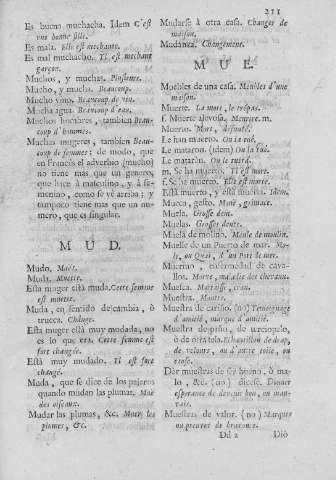 211
Es buena muchacha. Idem C'est
une bonne fille.
Es mala. Elle est mechante.
Es mal muchacho. Il est mechant
garçon.
Muchos, y muchas. Plusieurs.
Mucho, y mucha. Beaucoup.
Mucho vino. Beaucoup de vin.
Mucha agua. Beaucoup d'eau.
Muchos hombres, tambien Beau-
coup d'hommes.
Muchas mugeres, tambien Beau-
coup de femmes: de modo, que
en Francès el adverbio (mucho)
no tiene mas que un genero,
que hace à masculino, y à fe-
menino, como se vè arriba; y
tampoco tiene mas que un nu-
mero, que es singular.
MUD.
Mudo. Muët.
Muda. Muette.
Esta muger està muda. Cette femme
est muette.
Muda, en sentido de cambia, ò
trucca. Change.
Esta muger està muy mudada, no
es lo que era. Cette femme est
fort changée.
Està muy mudado. Il est fort
changé.
Muda, que se dice de los pajaros
quando mudan las plumas. Muë
des oiseaux.
Mudar las plumas, &c. Muer les
plumes, &c.
Mudarse à otra casa. Changer de
maison.
Mudanza. Changement.
MUE.
Muebles de una casa. Meubles d'une
maison.
Muerte. La mort, le trépas.
f. Muerte alevosa. Meurtre. m.
Muerto. Mort,
Le han muerto. On l'a tué.
Le mataron. (idem) On l'a tué.
Le mataràn. On le tuera.
m. Se ha muerto. Il est mort.
f. Se ha muerto. Elle est morte.
Està muerto, y està muerta. Idem.
Mueco, gesto. Mouë, grimace.
Muela. Grosse dent.
Muelas. Grosses dents.
Muela de molino. Meule de moulin.
Muelle de un Puerto de mar. Mo-
le, ou Quai, d'un Port de mer.
Muermo, enfermedad de cava-
llos. Morve, maladie des chevaux.
Muesca. casse, cran.
Muestra. Montre.
Muestra de cariño. (no) Temoignage
d'amitié, marque d'amitié.
Muestra de paño, de terciopelo,
ò de otra tela. Echantillon de drap,
de velours, ou d'autre toile, ou
étofe.
Dàr muestras de ser bueno, ò ma-
lo, &c. (no) dicese. Donner
esperance de devenir bon, ou mau-
vais.
Muestras de valor. (no) Marques
ou preuves de bravoure.
Dd 2 Diò